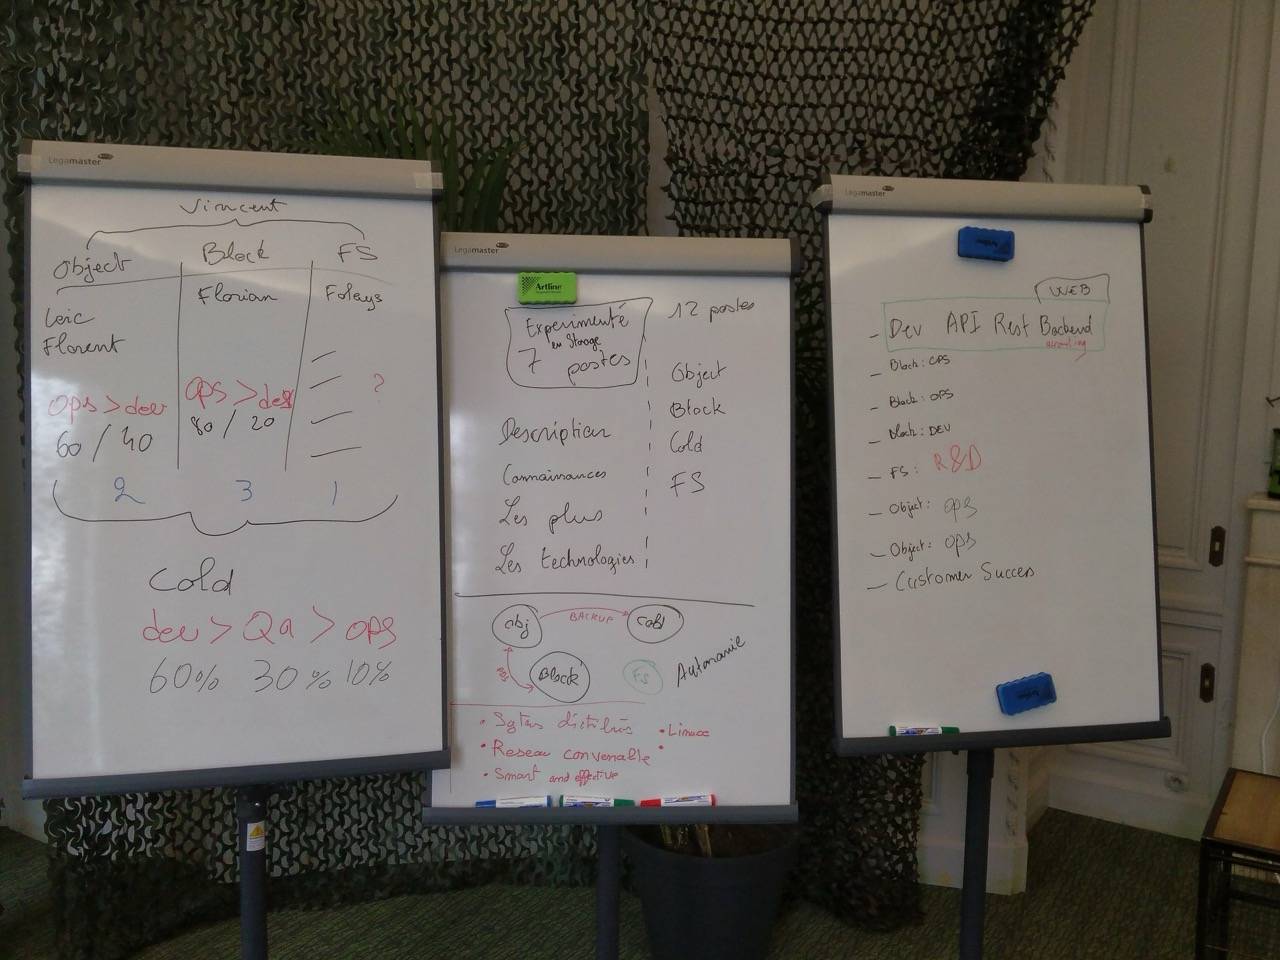 Legamaster
Vincent
Object
Block
FS
Loic
Florent
Florian
Folays
ops > dev
60 / 40
ops > dev
80 / 20
?
2
3
1
Cold
dev > Qa > ops
60% 30% 10%
Legamaster
Artline
Experimenté
en Storage
7 postes
12 postes
Object
Block
Cold
FS
Description
Connaissances
Les plus
Les technologies
obj
BACKUP
Cold
Block
FS
Autonomie
• Linux
• Reseau convenable
• Smart and effective
Legamaster
Artline
WEB
- Dev API Rest Backend
- Block: OPS
- Block: OPS
- Block: DEV
- FS: R&D
- Object: ops
- Object: ops
- Customer Success
Artline